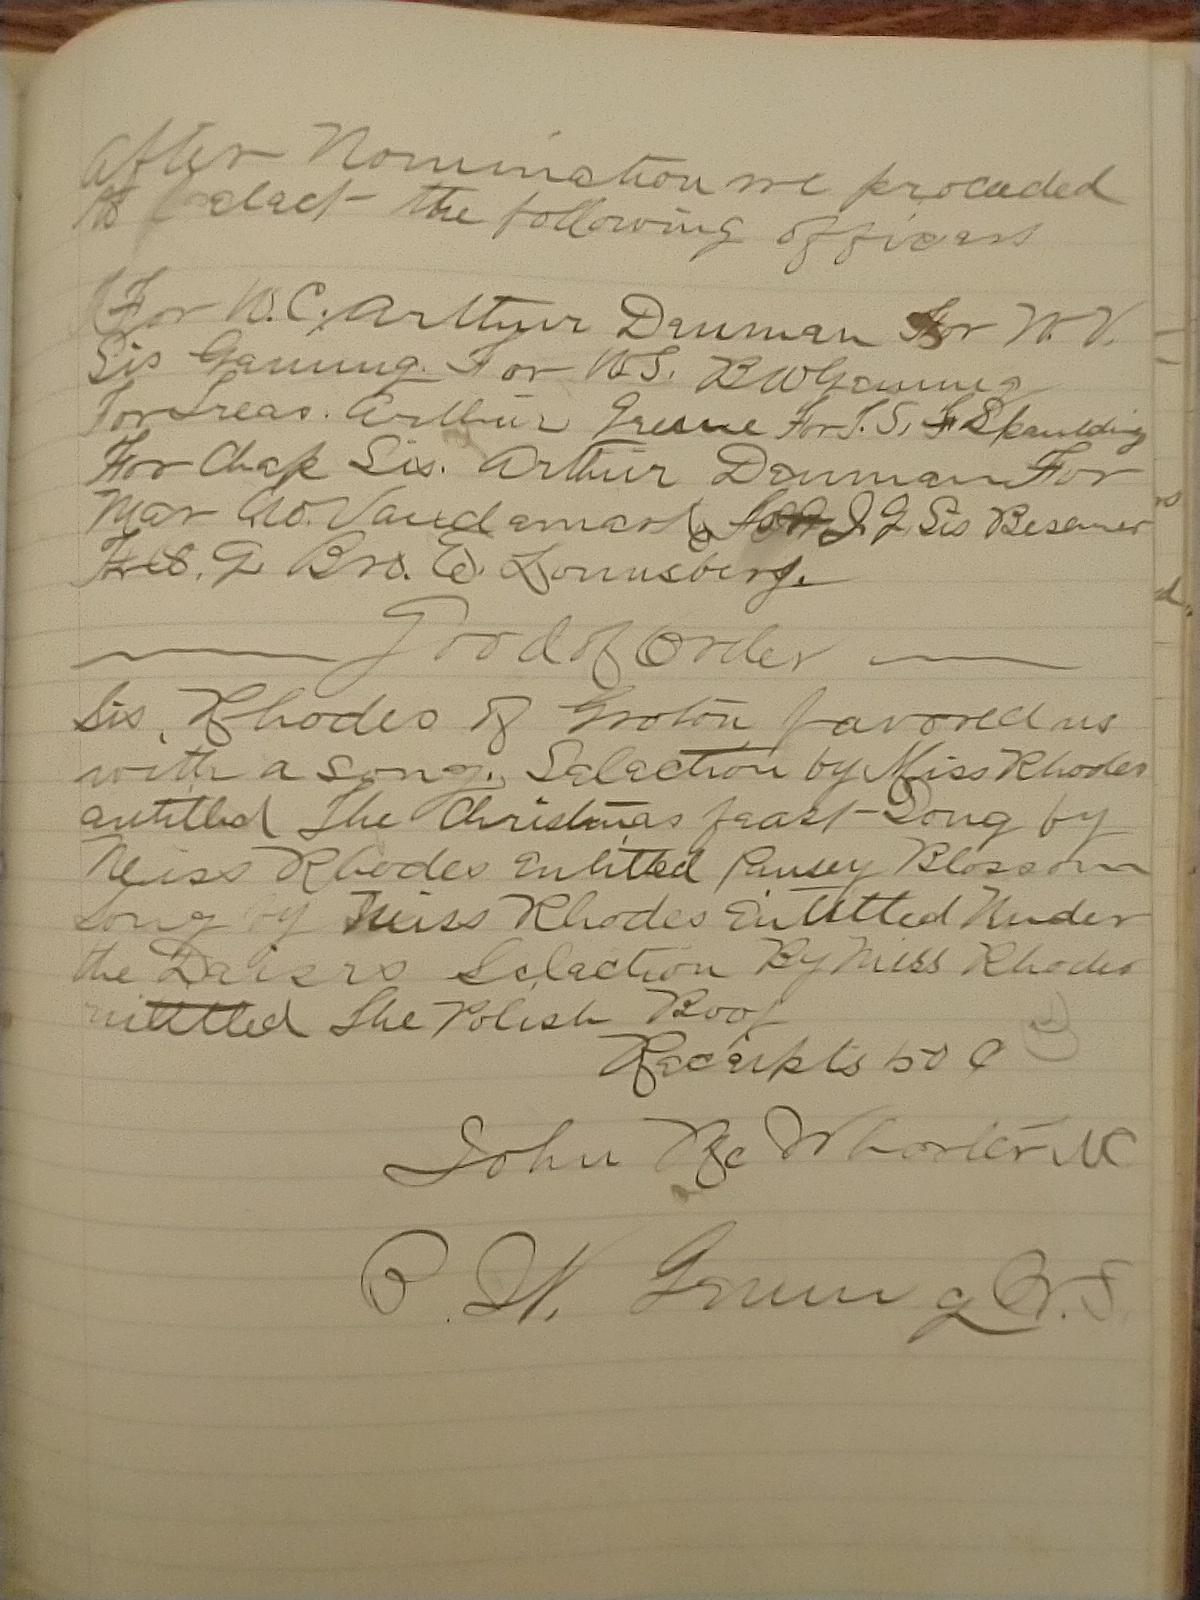 After Nomination we proceded
to elect the following officers
For W.C. Arthur Denman For W.V.
Sis Genung. For W.S. B W Genung
For Treas. Arthur Greene For F.S. F Spaulding
For Chap Sis. Arthur Denman For
Mar Geo. Vandemark For I.G. Sis Besemer
For O.G Bro. E. Lounsbery.
Good of Order
Sis. Rhodes of Groton favored us
with a song. Selection by Miss Rhodes
entitled The Christmas feast Song by
Miss Rhodes Entitled Pansey Blossom
Song by Miss Rhodes Entittled Under
the Daisies Selection By Miss Rhodes
entittled The Polish Boy
Receipts 50 c
John Mc Whorter
B. W. Genung W.S.